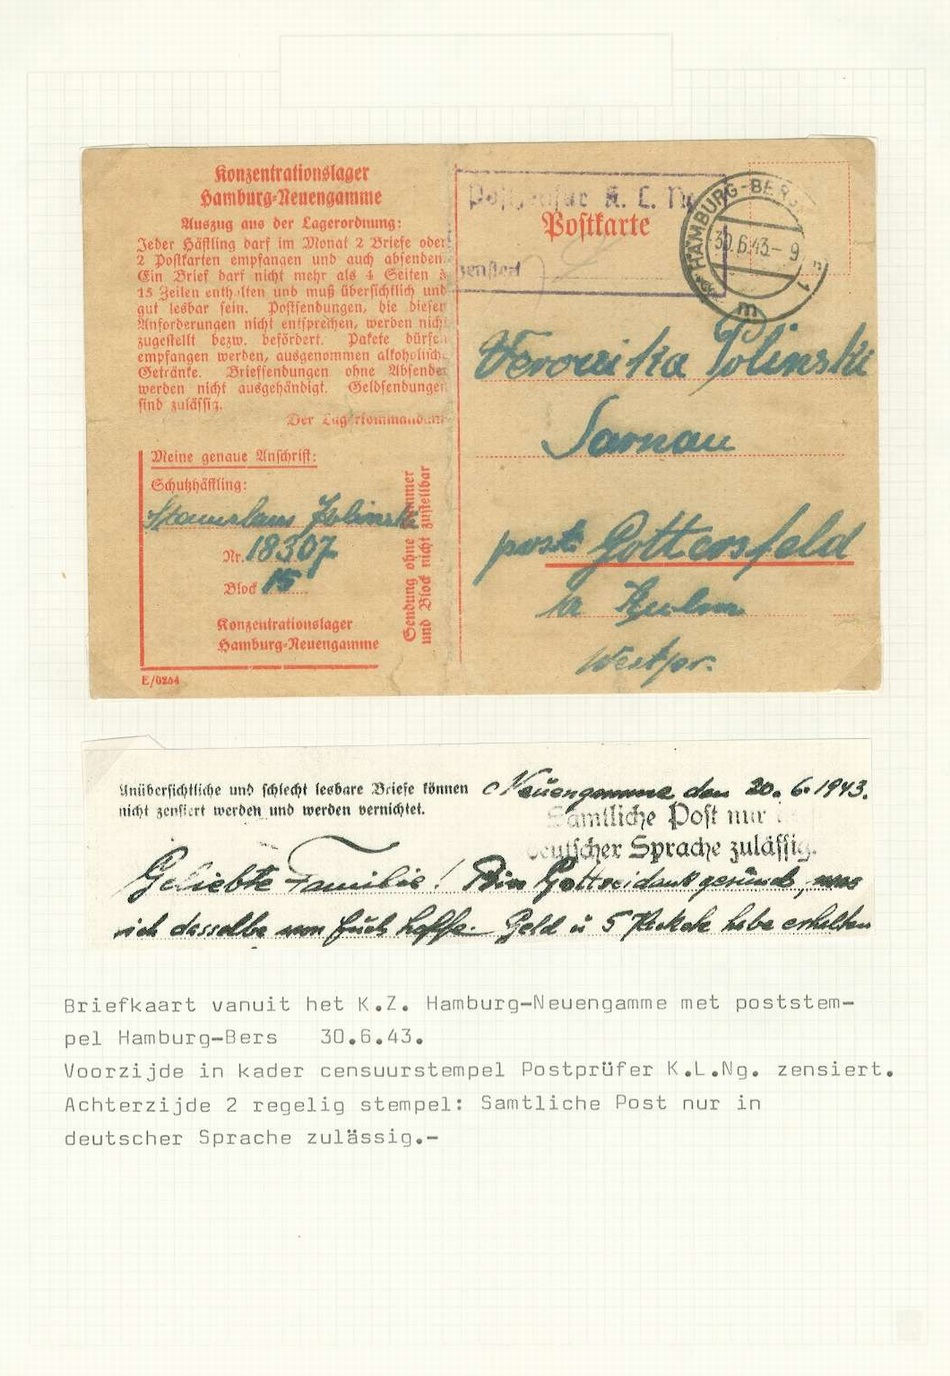 Konzentrationslager
Hamburg-Neuengamme
Auszug aus der Lagerordnung:
Jeder Häftling darf im Monat 2 Briefe oder
2 Postkarten empfangen und auch absenden
Ein Brief darf nicht mehr als 4 Seiten à
15 Zeilen enthalten und muß übersichtlich und
gut lesbar sein. Postsendungen, die diesen
Anforderungen nicht entsprechen, werden nicht
zugestellt bezw. befördert. Pakete dürfen
empfangen werden, ausgenommen alkoholische
Getränke. Briefsendungen ohne Absender
werden nicht ausgehändigt. Geldsendungen
sind zulässig.
Der Lagerkommandant
Meine genaue Anschrift:
Schutzhäftling:
Stanislaus Polinski
Nr. 18307
Block 15
Konzentrationslager
Hamburg-Neuengamme
Sendung ohne Nummer
und Block nicht zustellbar
E/0254
K. L. Ng
Postkarte
zensiert
HAMBURG-BERG
30.6.43.- 9
1
m
Veronika Polinski
Sarnau
post Gottersfeld
Kulm
Westpr.
Unübersichtliche und schlecht lesbare Briefe können
nicht zensiert werden und werden vernichtet.
Neuengamme den 20. 6. 1943.
Sämtliche Post nur in
deutscher Sprache zulässig.
Geliebte Familie! Bin Gottseidank gesund, was
ich dasselbe von Euch hoffe. Geld u 5 Pakete habe erhalten
Briefkaart vanuit het K.Z. Hamburg-Neuengamme met poststem-
pel Hamburg-Bers 30.6.43.
Voorzijde in kader censuurstempel Postprüfer K.L.Ng. zensiert.
Achterzijde 2 regelig stempel: Samtliche Post nur in
deutscher Sprache zulässig.-